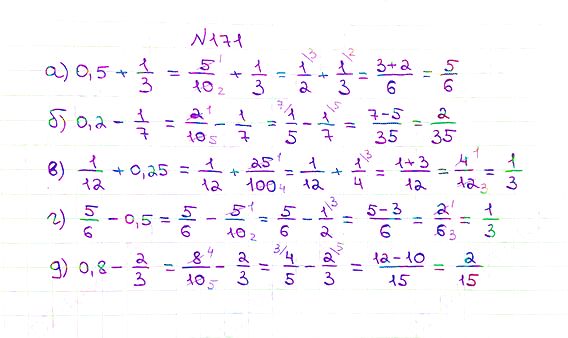 N171
а) 0,5 + 1/3 = 5/10 + 1/3 = 1/2 + 1/3 = 3+2/6 = 5/6
б) 0,2 - 1/7 = 2/10 - 1/7 = 1/5 - 1/7 = 7-5/35 = 2/35
в) 1/12 + 0,25 = 1/12 + 25/100 = 1/12 + 1/4 = 1+3/12 = 4/12 = 1/3
г) 5/6 - 0,5 = 5/6 - 5/10 = 5/6 - 1/2 = 5-3/6 = 2/6 = 1/3
д) 0,8 - 2/3 = 8/10 - 2/3 = 4/5 - 2/3 = 12-10/15 = 2/15